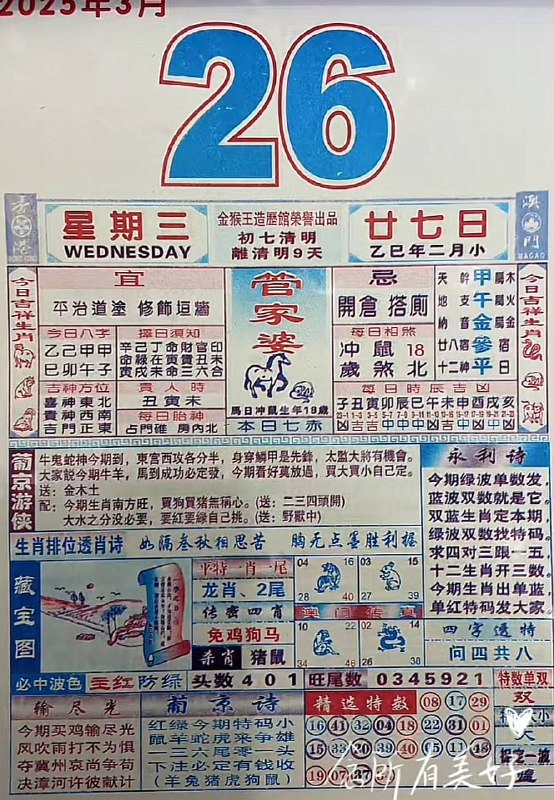 2025年3月
26
香港
HONG KONG
星期三
WEDNESDAY
金猴王造歷館榮譽出品
初七清明
離清明9天
廿七日
乙巳年二月小
澳門
MACAO
今日吉祥生肖
宜
平治道塗 修飾垣牆
今日八字
乙己甲甲
巳卯午子
擇日須知
辛己丁命財官印
命祿在寅貴丑未
寅戌未命三六合
吉神方位
喜神東北
貴神西南
吉門正東
貴人時
丑寅未
每日胎神
占門碓 房內北
管家婆
馬日冲鼠生年18歲
本日七赤
忌
開倉 搭廁
每日相煞
冲鼠18
歲煞北
天幹甲屬木
地支午屬火
納音金屬金
廿八宿參日
十二神平日
每日時辰吉凶
子丑寅卯辰巳午未申酉戌亥
今日吉祥生肖
葡京游侠
牛鬼蛇神今期到，東宮西攻各分半，身穿鱗甲是先鋒，太監大將有機會。
大家説今期牛羊，馬到成功必定發，今期看好莫放過，買大買小自己定。
送：金木土
配：今期生肖南方旺，買狗買猪無稱心。(送：二三四頭開)
大水之分没必要，要紅要綠自己挑。(送：野獸中)
永利诗
今期绿波单数发，
蓝波双数就是它，
双蓝生肖定本期，
绿波双数找特码。
求四对三跟一五，
十二生肖开三数，
今期生肖出单蓝，
单红特码发大家。
生肖排位透肖诗 如隔叁秋相思苦 胸无点墨胜利握
藏宝图
平特一肖一尾
龙肖、2尾
传密四肖
兔鸡狗马
杀肖 猪鼠
04 16
28 40
03 15
39
澳门传真
10 22
34 46
02 14
26 38
四字透特
问四共八
必中波色 主红防绿 头数401 旺尾数 0345921
特数单双
双
输尽光
今期买鸡输尽光
风吹雨打不为惧
夺冀州哀尚争荀
决漳河许彼献计
葡京诗
红绿今期特码小
鼠羊蛇虎来争雄
一三六尾零一头
下注必定有钱收
(羊兔猪虎狗鼠)
精选特数 08 17 29
16 41 32 04 18 22 31 01
15 33 20 39 40 05 11 48
19 07 37
特定一波
所有美好